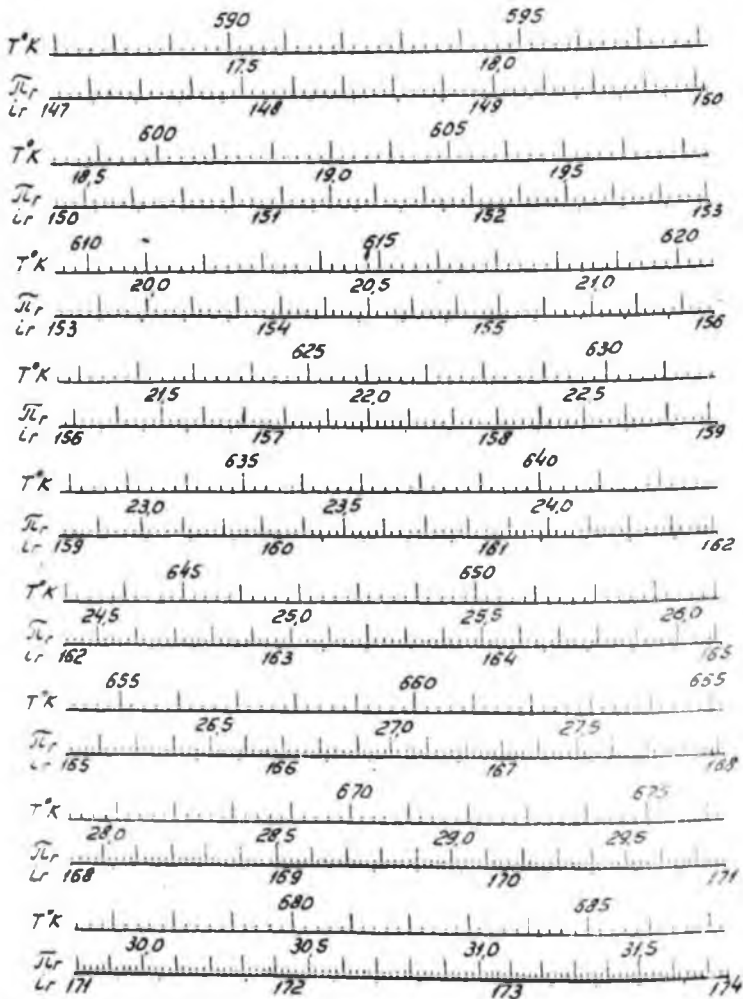 590 595
T°K
17,5 18,0
πr
ir 147 148 149 150
600 605
T°K
18,5 19,0 19,5
πr
ir 150 151 152 153
610 615 620
T°K
20,0 20,5 21,0
πr
ir 153 154 155 156
625 630
T°K
21,5 22,0 22,5
πr
ir 156 157 158 159
635 640
T°K
23,0 23,5 24,0
πr
ir 159 160 161 162
645 650
T°K
24,5 25,0 25,5 26,0
πr
ir 162 163 164 165
655 660 655
T°K
26,5 27,0 27,5
πr
ir 165 166 167 168
670 675
T°K
28,0 28,5 29,0 29,5
πr
ir 168 169 170 171
680 685
T°K
30,0 30,5 31,0 31,5
πr
ir 171 172 173 174